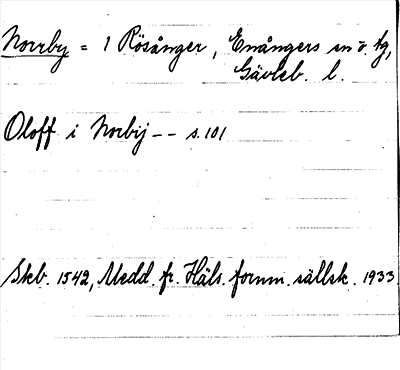 Norrby = 1 Rösånger, Enångers sn o. tg,
Gävleb. l.
Oloff i Norbij -- s. 101
Skb. 1542, Medd. fr. Häls. fornm. sällsk. 1933